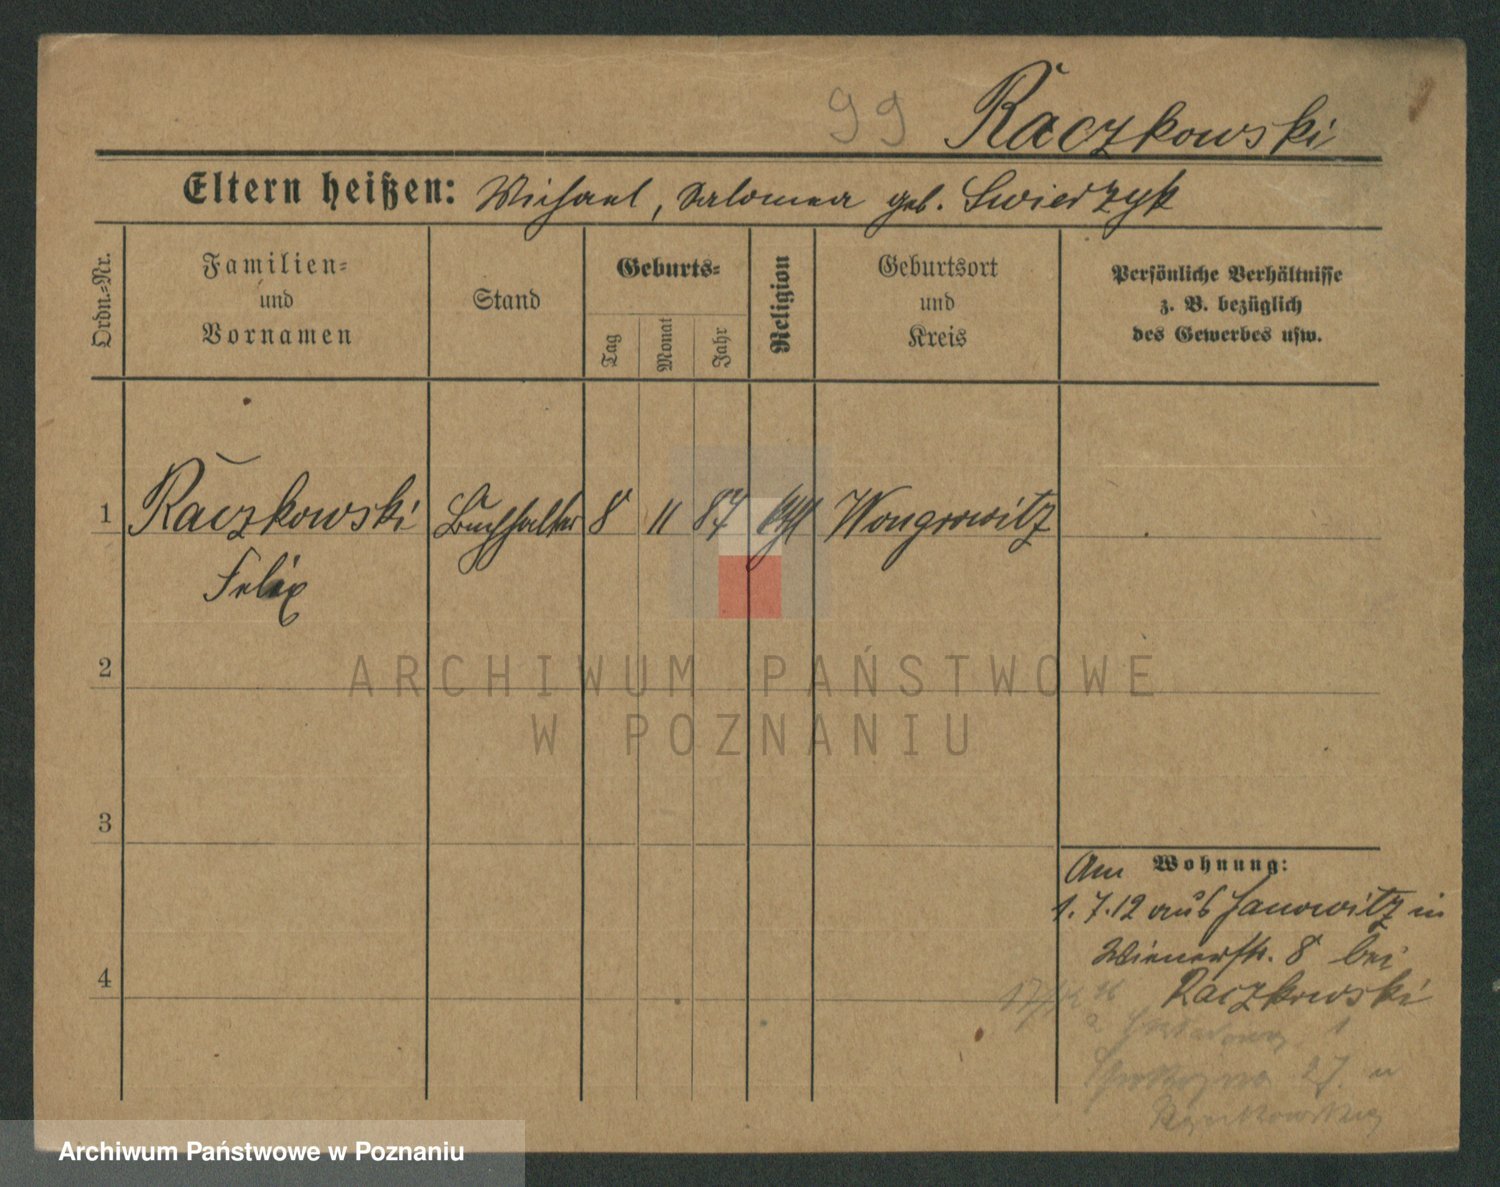 99 Raczkowski
Eltern heißen: Michael, Salomea geb. Swierzyk
Ordn.-Nr.
Familien-
und
Vornamen
Stand
Geburts-
Tag
Monat
Jahr
Religion
Geburtsort
und
Kreis
Persönliche Verhältnisse
z. B. bezüglich
des Gewerbes usw.
1 Raczkowski Buchhalter 8 11 87 kth Wongrowitz
Felix
2
3
4
Am Wohnung:
1.7.12 aus Janowitz in
Wienerstr. 8 bei
Raczkowski
27.
ARCHIWUM PAŃSTWOWE
W POZNANIU
Archiwum Państwowe w Poznaniu